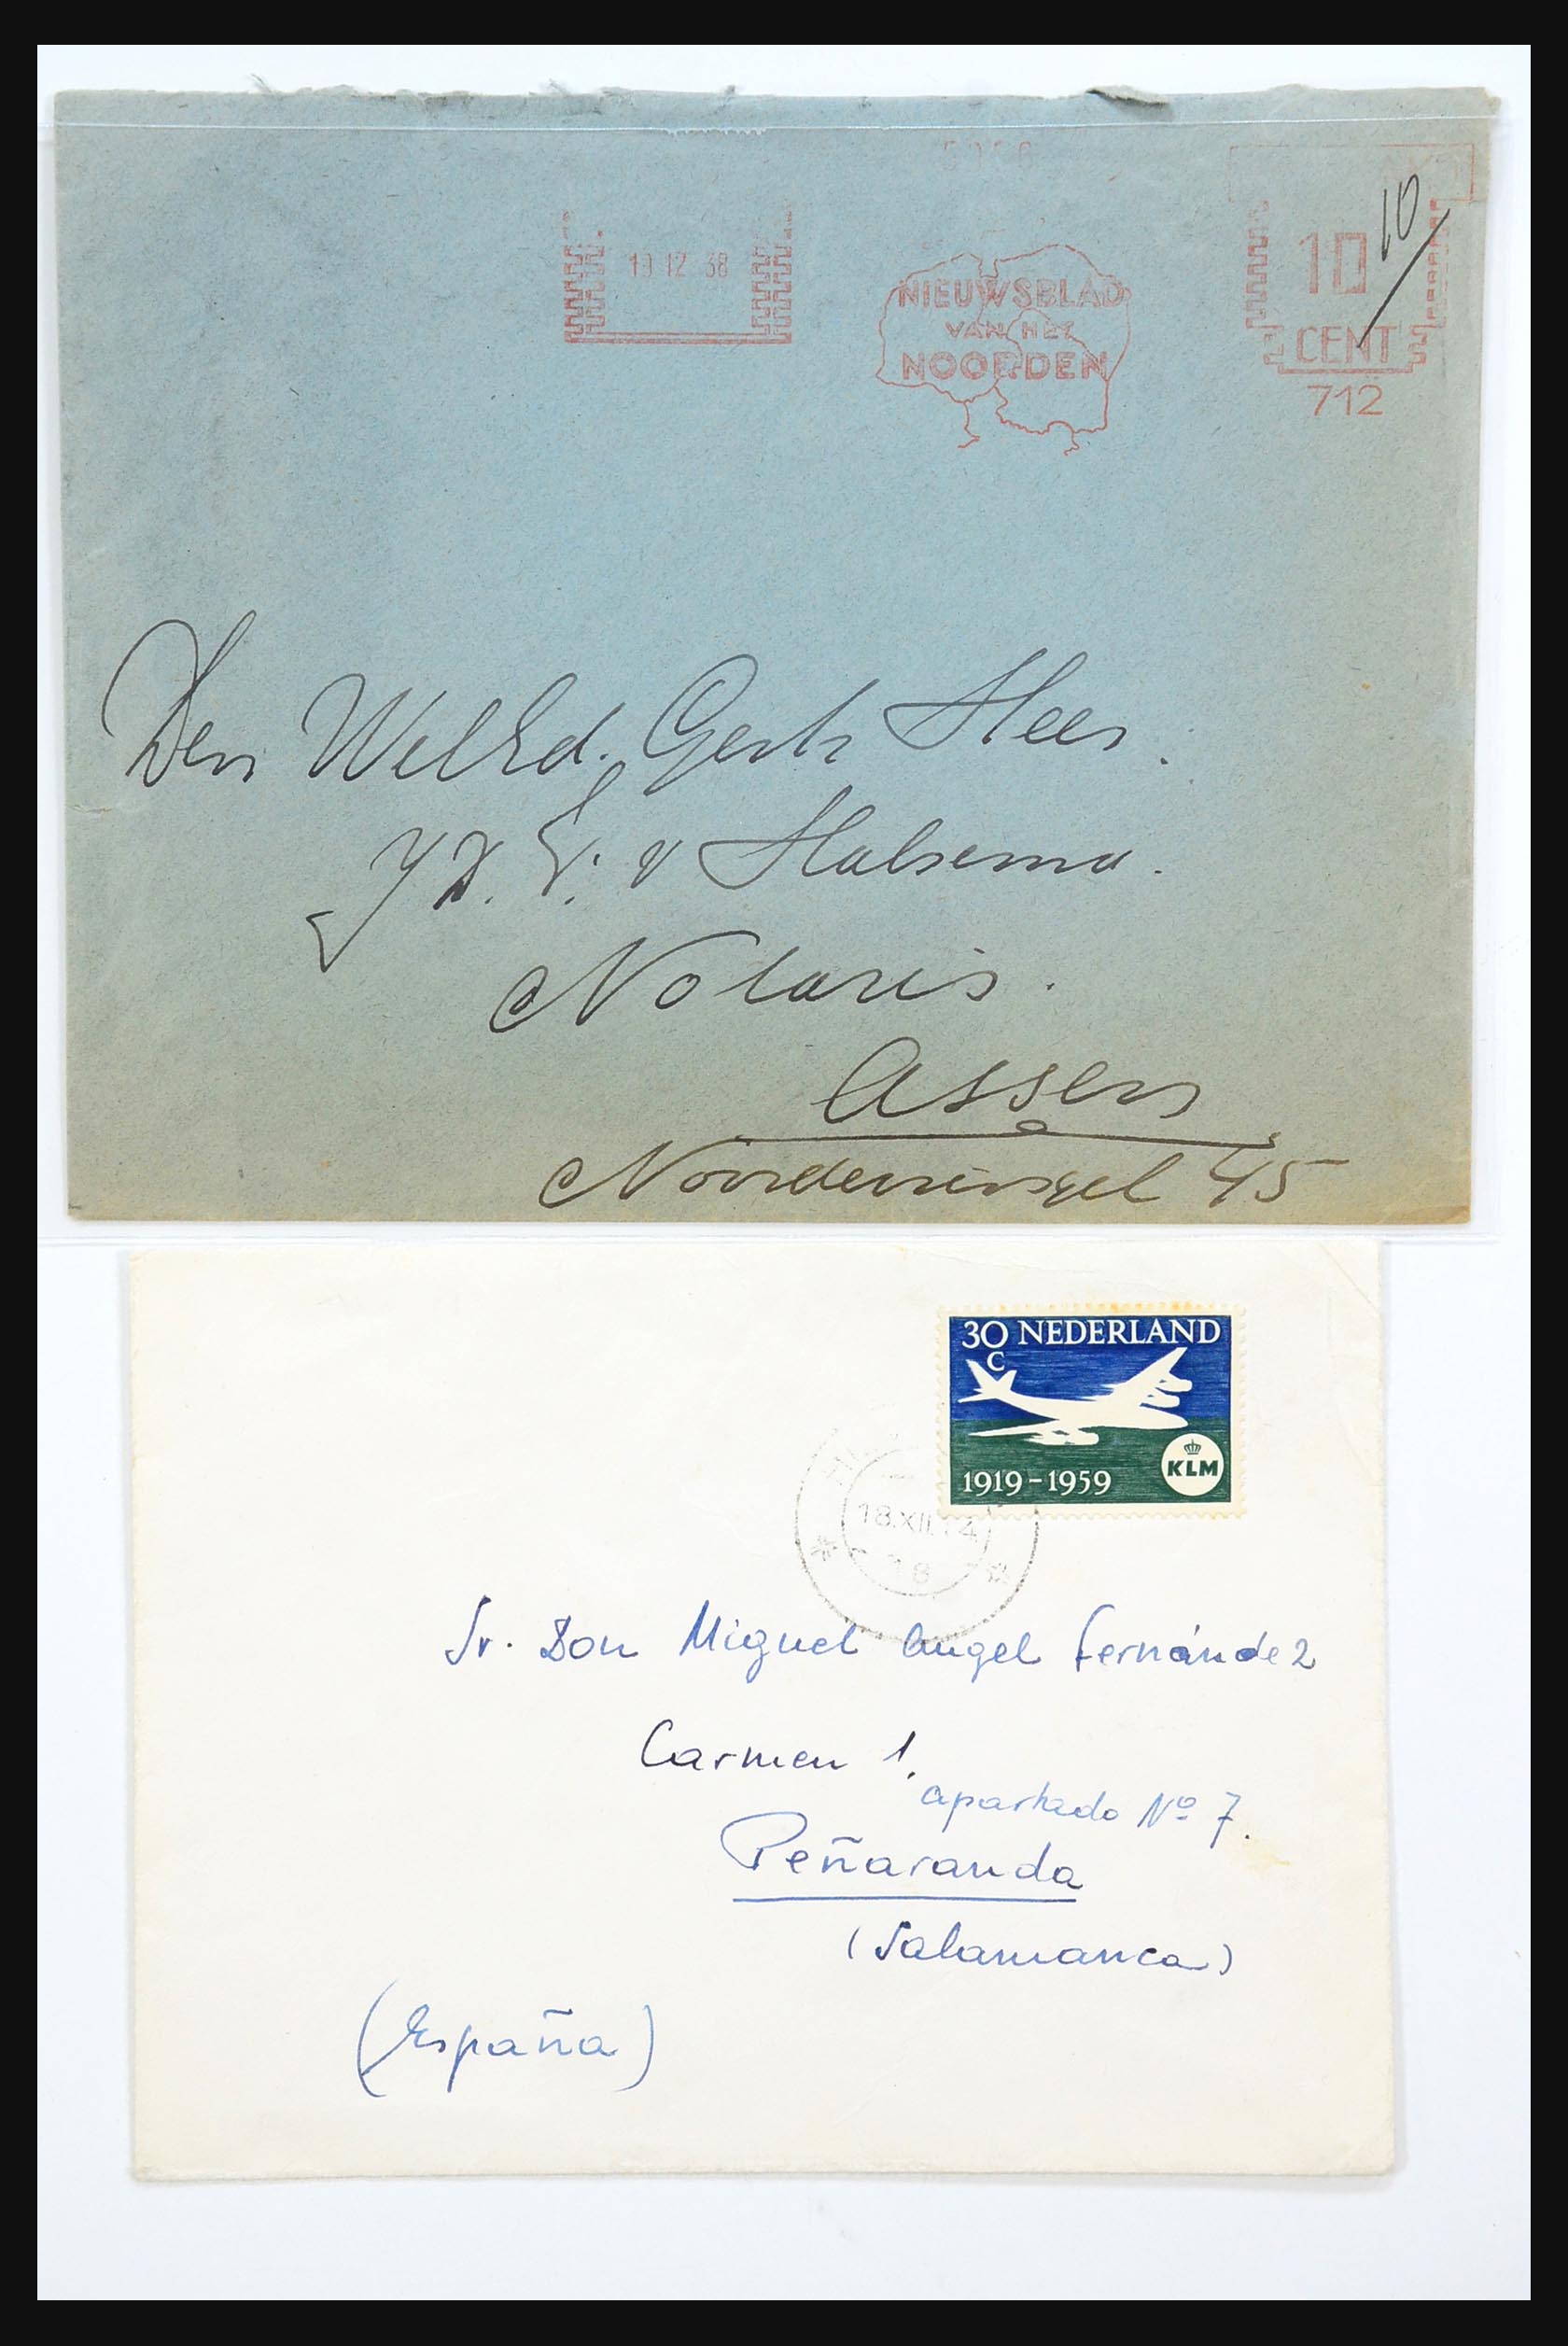 19 12 38
NIEUWSBLAD
VAN HET
NOORDEN
10
CENT
712
10
Den WelEd. Gestr Heer.
v Halsema.
Notaris.
Assen
Noordersingel 45
30 C NEDERLAND
1919-1959
KLM
18.XII. 4
18
Sr. Don Miguel Angel Fernández
Carmen 1,
apartado Nº 7.
Peñaranda
(Salamanca)
(España)